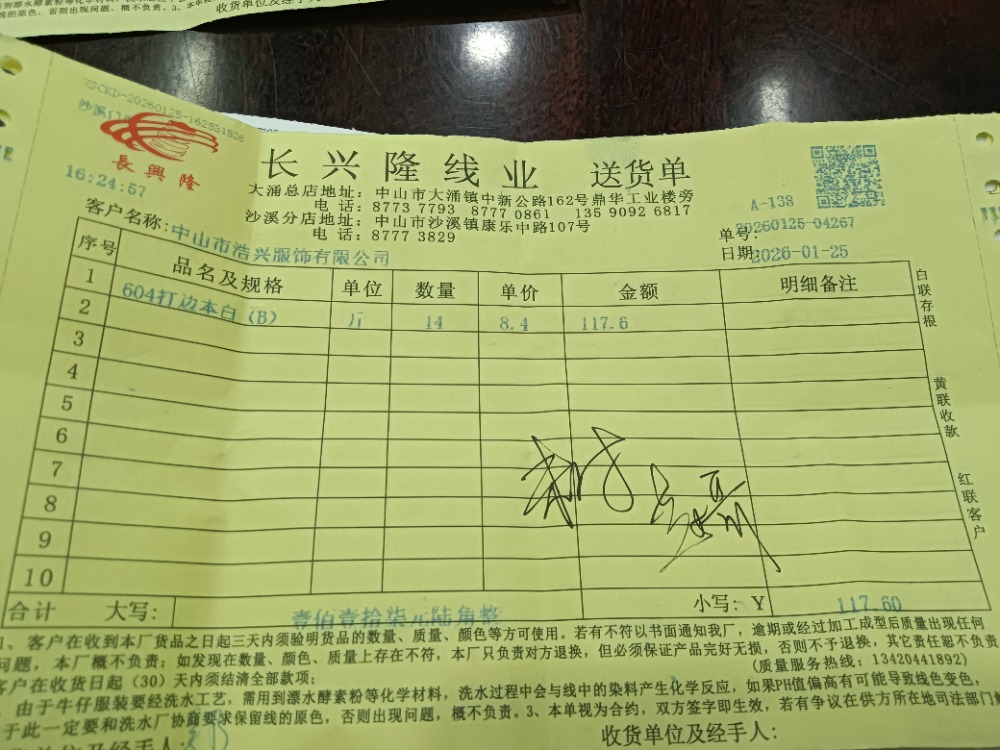 收货单位及经手人
线的原色，否则出现问题，概不负责。3、本单
XSCKD-20260125-162531526
沙溪
長興隆
16:24:57
长兴隆线业 送货单
大涌总店地址：中山市大涌镇中新公路162号鼎华工业楼旁
电 话：8773 7793 8777 0861 135 9092 6817
沙溪分店地址：中山市沙溪镇康乐中路107号
电 话：8777 3829
A-138
单号：20260125-04267
日期：2026-01-25
客户名称：中山市浩兴服饰有限公司
序号 品名及规格 单位 数量 单价 金额 明细备注
1 604打边本白（B） 斤 14 8.4 117.6
2
3
4
5
6
7
8
9
10
白联存根
黄联收款
红联客户
合计 大写：壹佰壹拾柒元陆角整 小写：Y 117.60
1、客户在收到本厂货品之日起三天内须验明货品的数量、质量、颜色等方可使用。若有不符以书面通知我厂，逾期或经过加工成型后质量出现任何
问题，本厂概不负责；如发现在数量、颜色、质量上存在不符，本厂只负责对方退换，但必须保证产品完好无损，否则不予退换，其它责任恕不负责
（质量服务热线：13420441892）
客户在收货日起（30）天内须结清全部款项；
由于牛仔服装要经洗水工艺，需用到漂水酵素粉等化学材料，洗水过程中会与线中的染料产生化学反应，如果PH值偏高有可能导致线色变色，
于此一定要和洗水厂协商要求保留线的原色，否则出现问题，概不负责。3、本单视为合约，双方签字即生效，若有争议在供方所在地司法部门
单位及经手人：
收货单位及经手人：